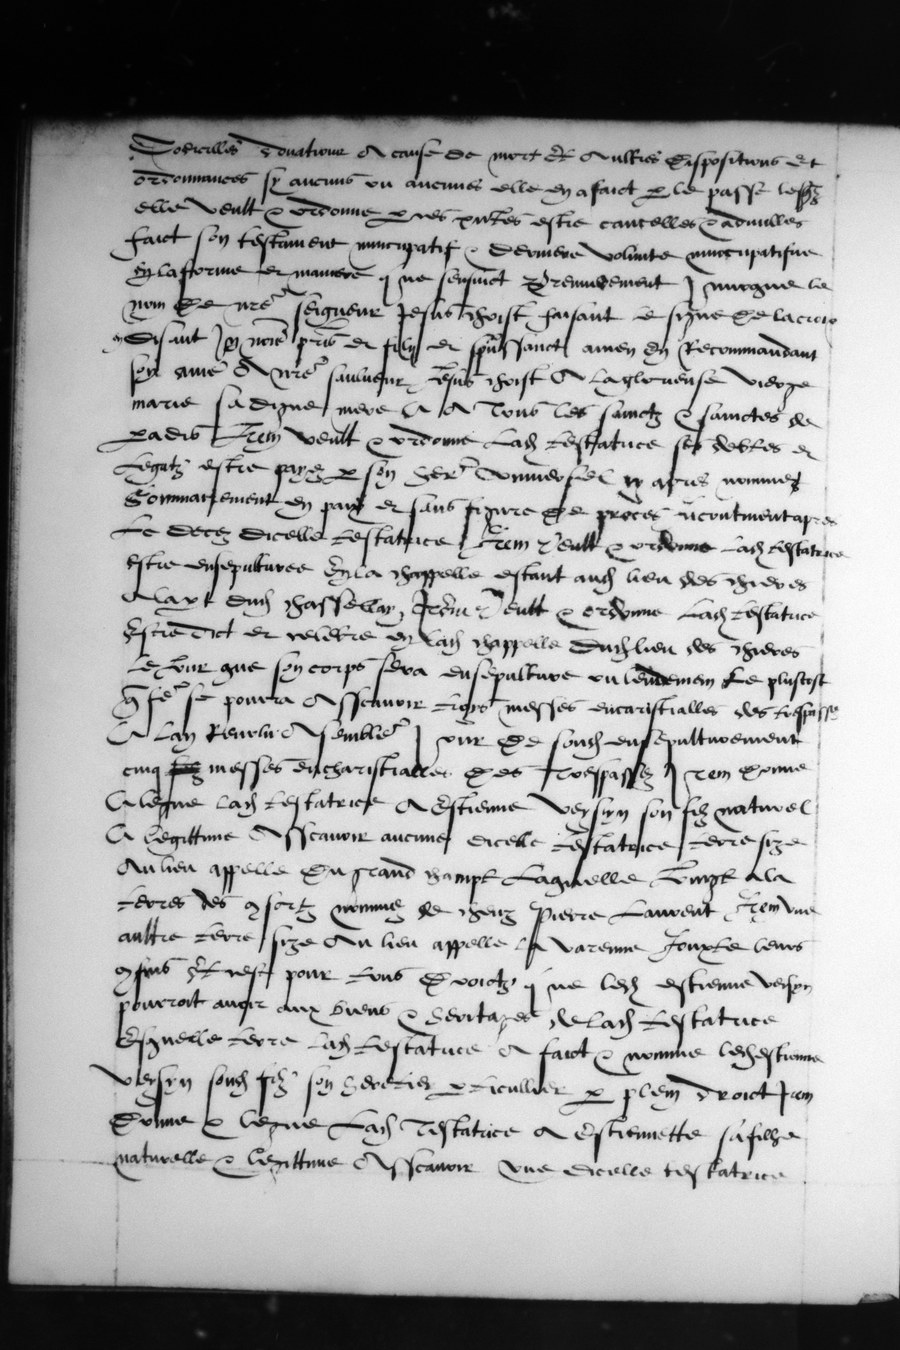 Codicilles donations A cause de mort Et Aultres dispositions Et
ordonnances sy aucuns ou aucunes elle en a faict par le passe lesqlz
elle veult & ordonne par ces pntes estre cancelles & adnulles
faict son testament nuncupatif & derniere volunte nuncupatifve
En la forme et maniere q ne sensuict Et premierement Invoque le
nom de nre seigneur Jesus christ faisant le signe de la croix
disant In noie pris et filij et spus sancti amen En Recommandant
son ame A nre saulveur Jesus christ A la glorieuse vierge
marie sa digne mere & A Tous les sanctz & sanctes de
paradis Item veult & ordonne Lad testatrice ses debtes et
Legatz estre payez par son her universel cy apres nomme
Sommairement en paix et sans figure de proces incontinent apres
Le decez dicelle testatrice Item Veult & ordonne Lad testatrice
Estre ensepulturee En la chappelle estant aud lieu des
Item Veult & ordonne Lad testatrice
Estre dict et celebre en lad chappelle dud lieu des
Le Jour que son corps sera ensepulture ou lendemain Le plustost
q fe se pourra Assavoir troys messes eucaristialles des trespassez
& Lan Revolu A semblable Jour de soud ensepulturement
cinq messes eucharistialles des trespassez Item donne
& legue Lad testatrice A Estienne Versyn son filz naturel
& legittime Assavoir aucune dicelle testatrice terre size
Au lieu appelle Du grand champt Laquelle Jouxte a la
terres des nomme de Pierre Laurent Item une
aultre terre size Au lieu appelle la varenne Jouxte leurs
confins Et cest pour tous droictz q ne led estienne versyn
pourroit avoir aux biens & heritages de Lad testatrice
Esquelle terre Lad testatrice A faict & nomme led estienne
Versyn soud filz son heretier particullier par plein droict Item
Donne & legue Lad Testatrice A Estiennette sa filhe
naturelle & legittime Assavoir une dicelle testatrice